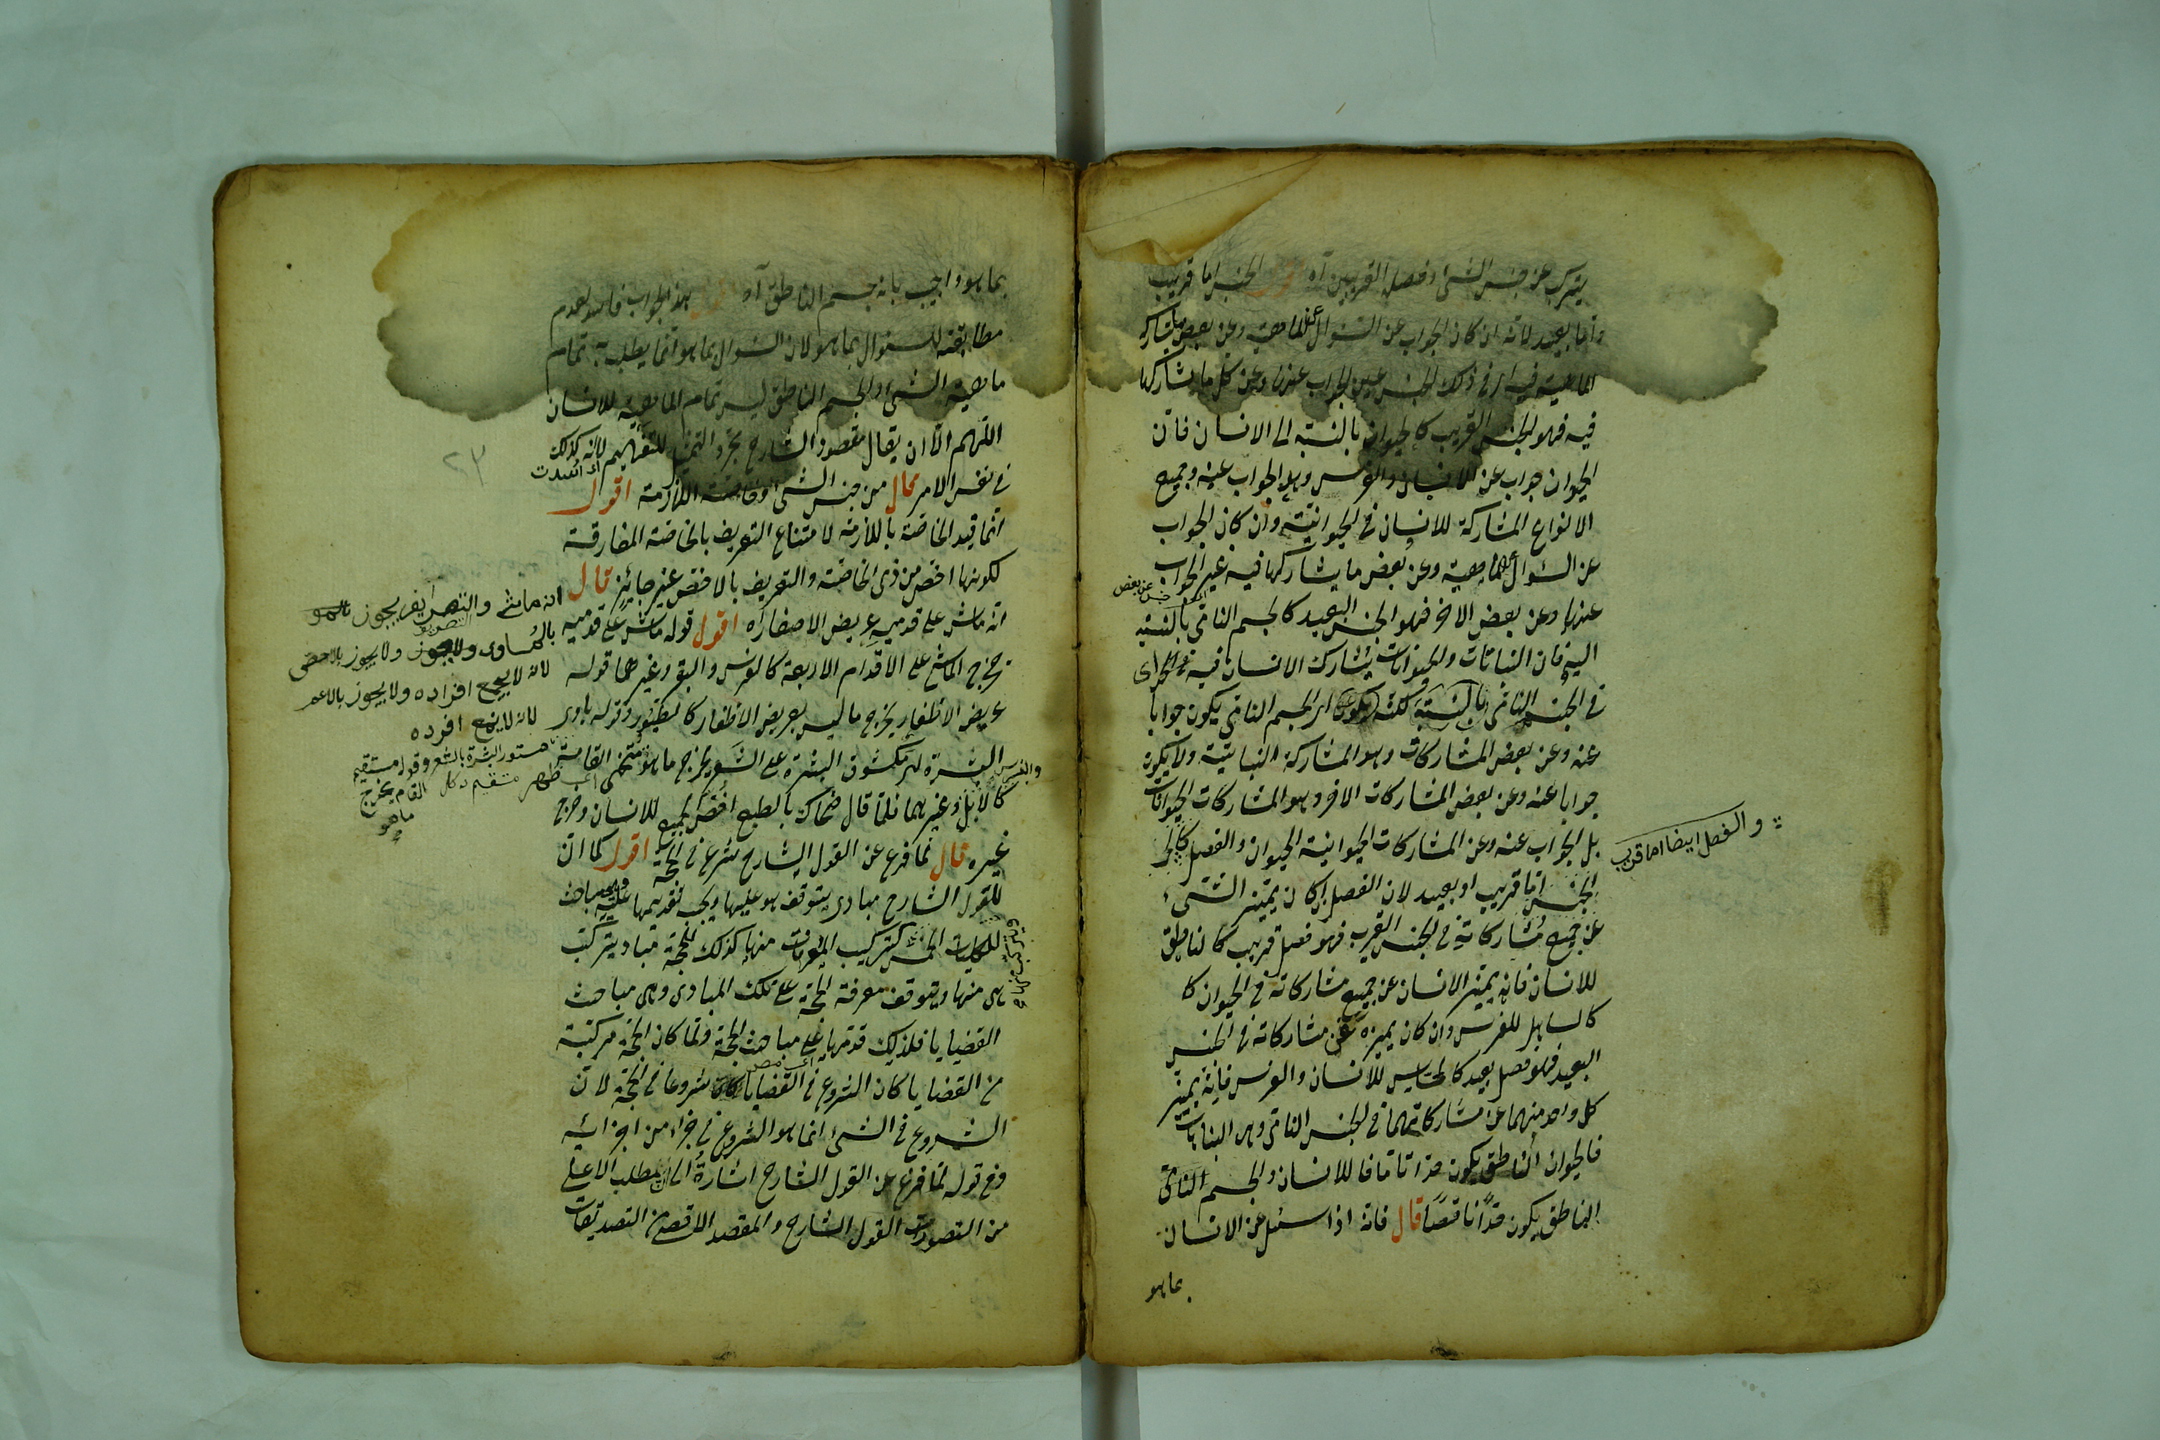 يتركب عن جنس الشئ وفصله القريبين آه اقول الجنس اما قريب
واما بعيد لانه ان كان الجواب عن السؤال عن الماهية وعن بعض ما يشاركه
الماهية فيه اى فى ذلك الجنس عين الجواب عنها وعن كل ما يشاركها
فيه فهو الجنس القريب كالحيوان بالنسبة الى الانسان فان
الحيوان جواب عن الانسان والفرس وهو الجواب عنه وجميع
الانواع المشاركة للانسان فى الحيوانية وان كان الجواب
عن السؤال عن الماهية وعن بعض ما يشاركها فيه غير الجواب
عنها وعن بعض الاخر فهو الجنس البعيد كالجسم النامى بالنسبة
اليه فان النباتات والحيوانات يشارك الانسان فيه
فى الجنس النامى بالنسبة اى الجسم النامى يكون جوابا
عنه وعن بعض المشاركات وهو المشاركة النباتية ولا يكون
جوابا عنه وعن بعض المشاركات الاخر وهو المشاركات الحيوانات
بل الجواب عنه وعن المشاركات الحيوانية الحيوان والفصل كالـ
الجنس اما قريب او بعيد لان الفصل ان كان يتميز الشئ
عن جميع مشاركاته فى الجنس القريب فهو فصل قريب كالناطق
للانسان فانه يميز الانسان عن جميع مشاركاته فى الحيوان كا
كالساهل للفرس وان كان يميزه عن مشاركاته فى الجنس
البعيد فهو فصل بعيد كالحساس للانسان والفرس فانه يميز
كل واحد منهما عن مشاركاتهما فى الجنس النامى وهى النباتات
فالحيوان الناطق يكون حدا تاما للانسان والجسم النامى
الناطق يكون حدا ناقصا قال فانه اذا سئل عن الانسان
بما هو
والفصل ايضا اما قريب
بما هو واجيب بانه جسم الناطق آه اقول هذا الجواب فاسد لعدم
مطابقته للسؤال بما هو لان السؤال بما هو انما يطلب به تمام
ماهية الشئ والجسم الناطق ليس تمام الماهية للانسان
اللهم الا ان يقال مقصود الشارح مجرد التمثيل للتفهيم لانه كذلك
فى نفس الامر قال من جنس الشئ وخاصته اللازمة اقول
انما قيد الخاصة باللازمة لامتناع التعريف بالخاصة المفارقة
لكونها اخص من ذى الخاصة والتعريف بالاخص غير جائز قال
انه ماش على قدميه عريض الاظفار آه اقول قوله ماش على قدميه
يخرج الماشى على الاقدام الاربعة كالفرس والبقر وغيرهما قوله
عريض الاظفار يخرج ما ليس بعريض الاظفار كالطيور وقوله بادى
البشرة اى مكشوف البشرة على الشعر يخرج ما هو منحنى القامة
كالابل وغيرهما فلما قال ضحاك بالطبع اختص الجميع للانسان وخرج
غيره قال لما فرغ عن القول الشارح شرع فى الحجة اقول كما ان
للقول الشارح مبادى يتوقف هو عليها ويجب تقديمها عليه وهى مباحث
للكليات الخمس كتركيب المعرفات منها كذلك للحجة مباد يتركب
هى منها ويتوقف معرفة الحجة على تلك المبادى وهى مباحث
القضايا فلذلك قدمها على مباحث الحجة ولما كان الحجة مركبة
من القضايا كان الشروع فى القضايا شروعا فى الحجة لان
الشروع فى الشئ انما هو الشروع فى جزء من اجزائه
وفى قوله لما فرغ عن القول الشارح اشارة الى ان المطلب الاعلى
من التصورات القول الشارح والمقصد الاقصى من التصديقات
والتعريف يجوز
بالمساوى ولا يجوز بالاخص
لانه لا يجمع افراده ولا يجوز بالاعم
لانه لا يمنع افرده
مستور البشرة بالشعر وقوله مستقيم
القامة يخرج
ما هو
٢٣